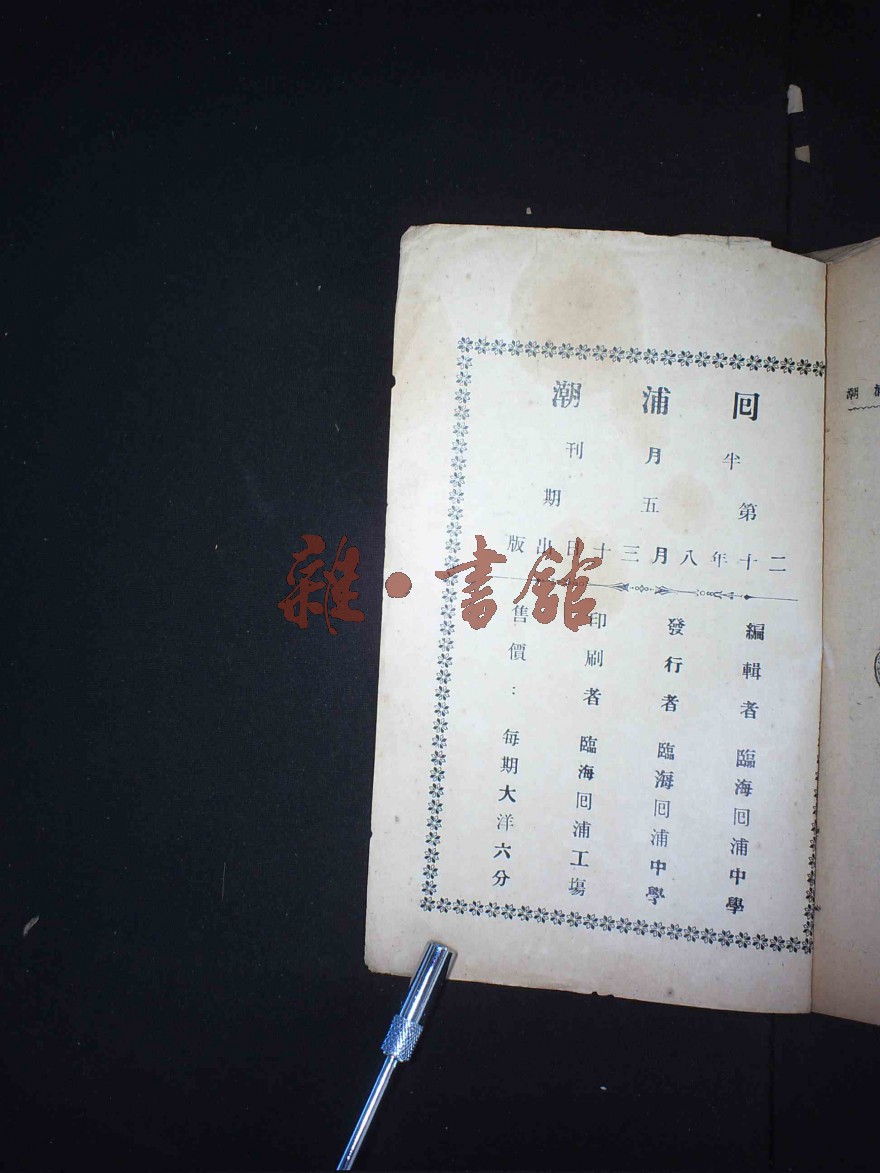 囘浦潮
半月刊
第五期
二十年八月三十日出版
編輯者 臨海囘浦中學
發行者 臨海囘浦中學
印刷者 臨海囘浦工塲
售價：每期大洋六分
雜·書館